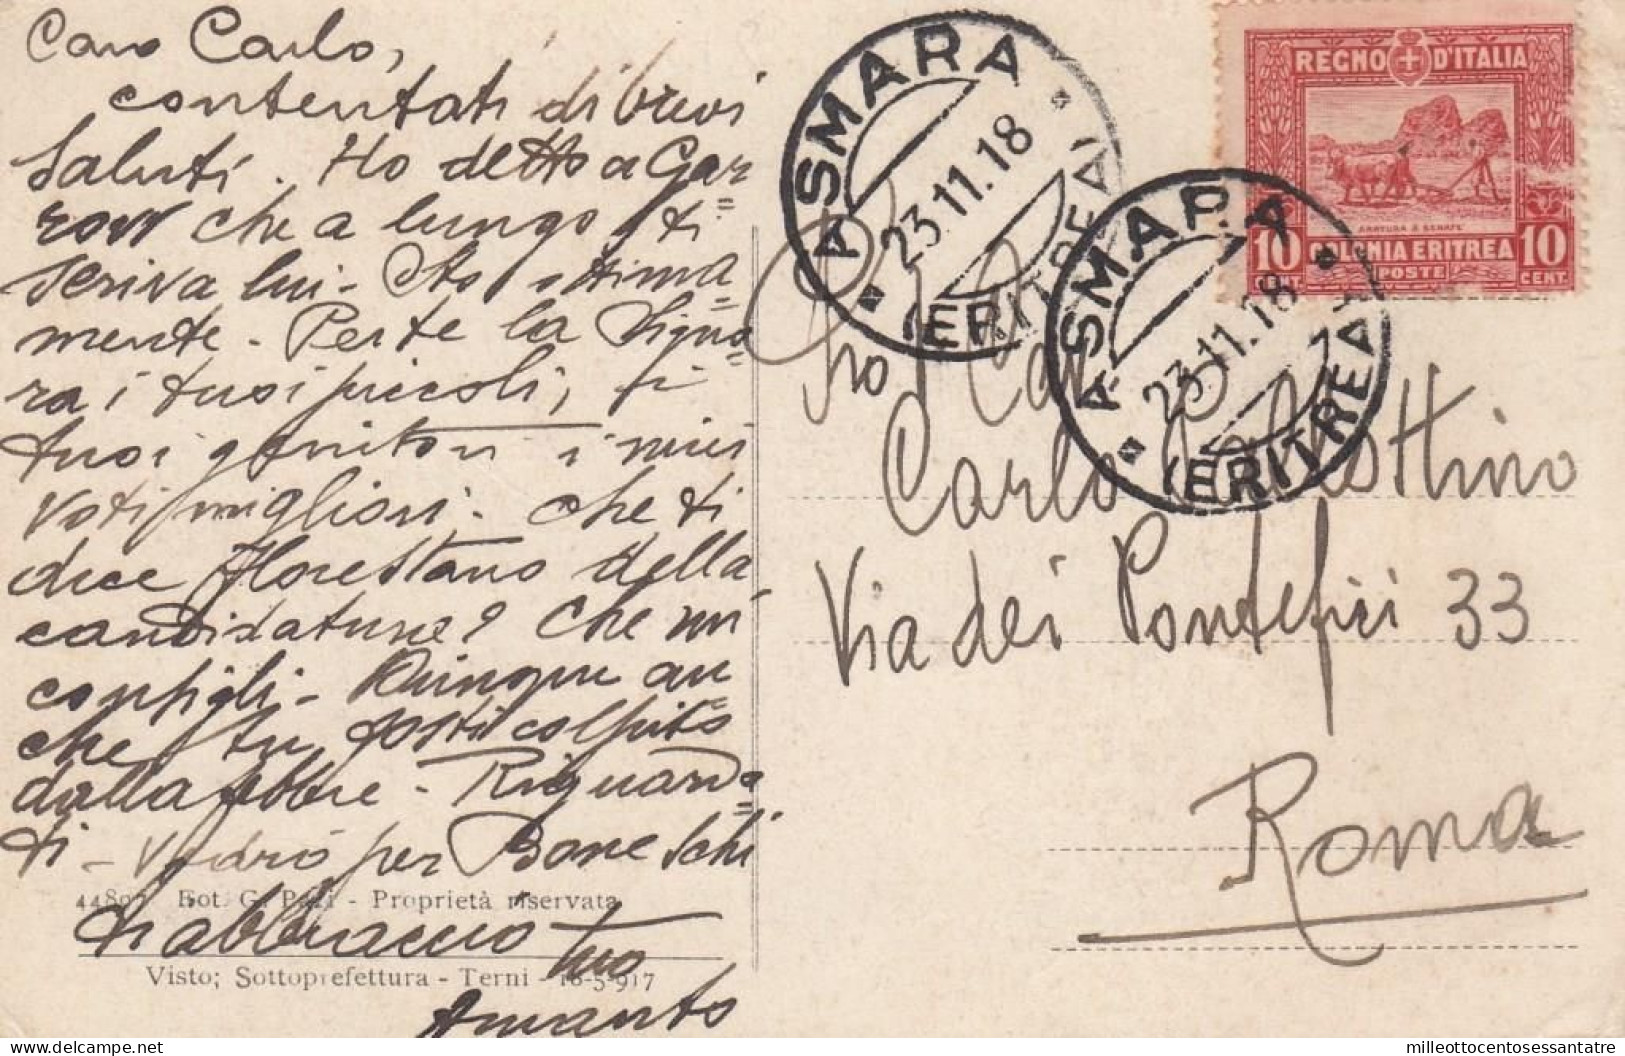 Caro Carlo,
contentati di brevi
saluti. Ho detto a Gar=
che a lungo ti
scriva lui - Sto ottima=
mente. Per te la Signo=
ra i tuoi piccoli, i
tuoi genitori i miei
voti migliori. Che ti
dice Florestano della
candidatura? Che mi
consigli - Dunque an=
che tu fosti colpito
dalla febbre - Riguarda=
ti - Vedrò per Boneschi
44897 Fot. G. Pazi - Proprietà riservata
T'abbraccio tuo
Visto; Sottoprefettura - Terni - 16-5-917
Amanto
ASMARA
23.11.18
(ERITREA)
ASMARA
23.11.18
(ERITREA)
REGNO D'ITALIA
ARATURA A SENAFE'
10 COLONIA ERITREA 10
CENT. POSTE CENT.
Carlo
Via dei Pontefici 33
Roma
milleottocentosessantatre